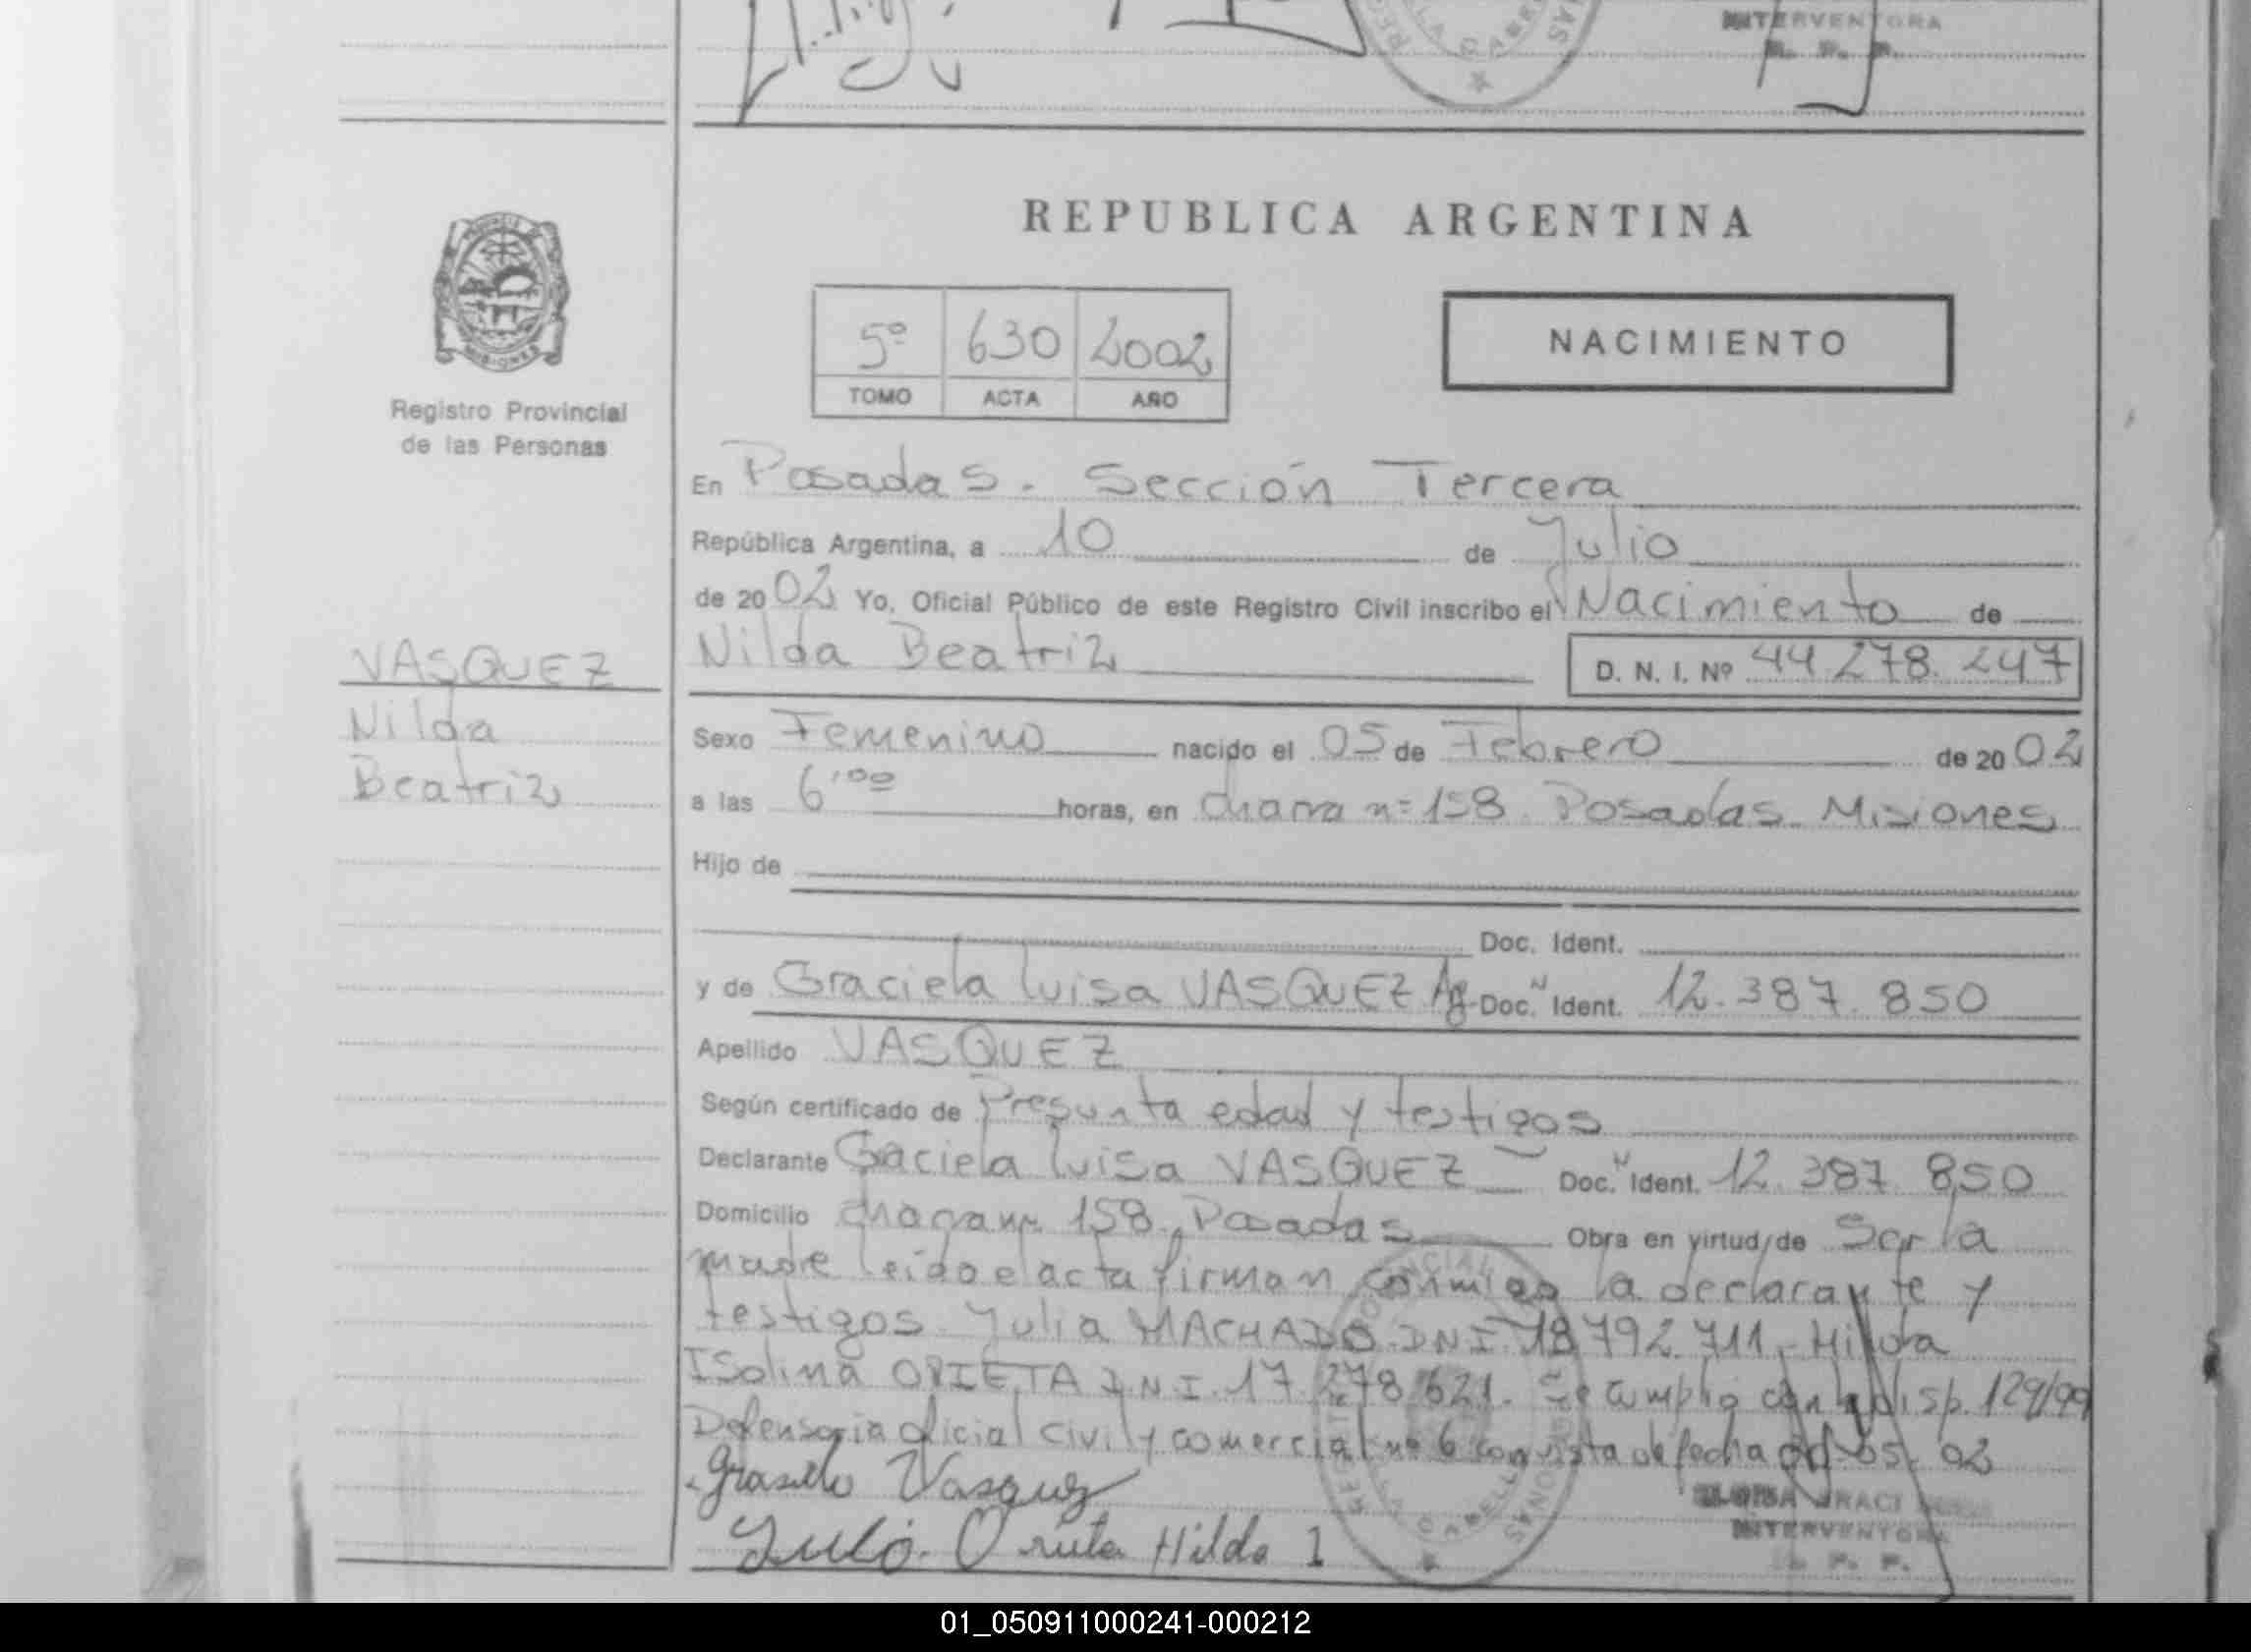 INTERVENTORA
R. P. P.
REPUBLICA ARGENTINA
MISIONES
5º 630 2002
TOMO ACTA AÑO
NACIMIENTO
Registro Provincial
de las Personas
En Posadas. Sección Tercera
República Argentina, a 10 de Julio
de 2002 Yo, Oficial Público de este Registro Civil inscribo el Nacimiento de
VASQUEZ
Nilda
Beatriz
Nilda Beatriz D. N. I. Nº 44.278.247
Sexo Femenino nacido el 05 de Febrero de 2002
a las 6'00 horas, en chacra nº 158. Posadas. Misiones
Hijo de
Doc. Ident.
y de Graciela Luisa VASQUEZ Ag. Doc. Ident. 12.387.850
Apellido VASQUEZ
Según certificado de Presunta edad y testigos
Declarante Graciela Luisa VASQUEZ Doc. Ident. 12.387.850
Domicilio chacra nº 158. Posadas Obra en virtud de Ser la
madre leido el acta firman conmigo la declarante y
testigos. Julia MACHADO. DNI. 18.792.711, Hilda
Isolina ORIETA D.N.I. 17.278.621. Se cumplio con la disp. 129/99
Defensoria oficial civil y comercial nº 6 con vista de fecha 05. 02
Vasquez
Orieta Hilda I
INTERVENTORA
R. P. P.
01_050911000241-000212